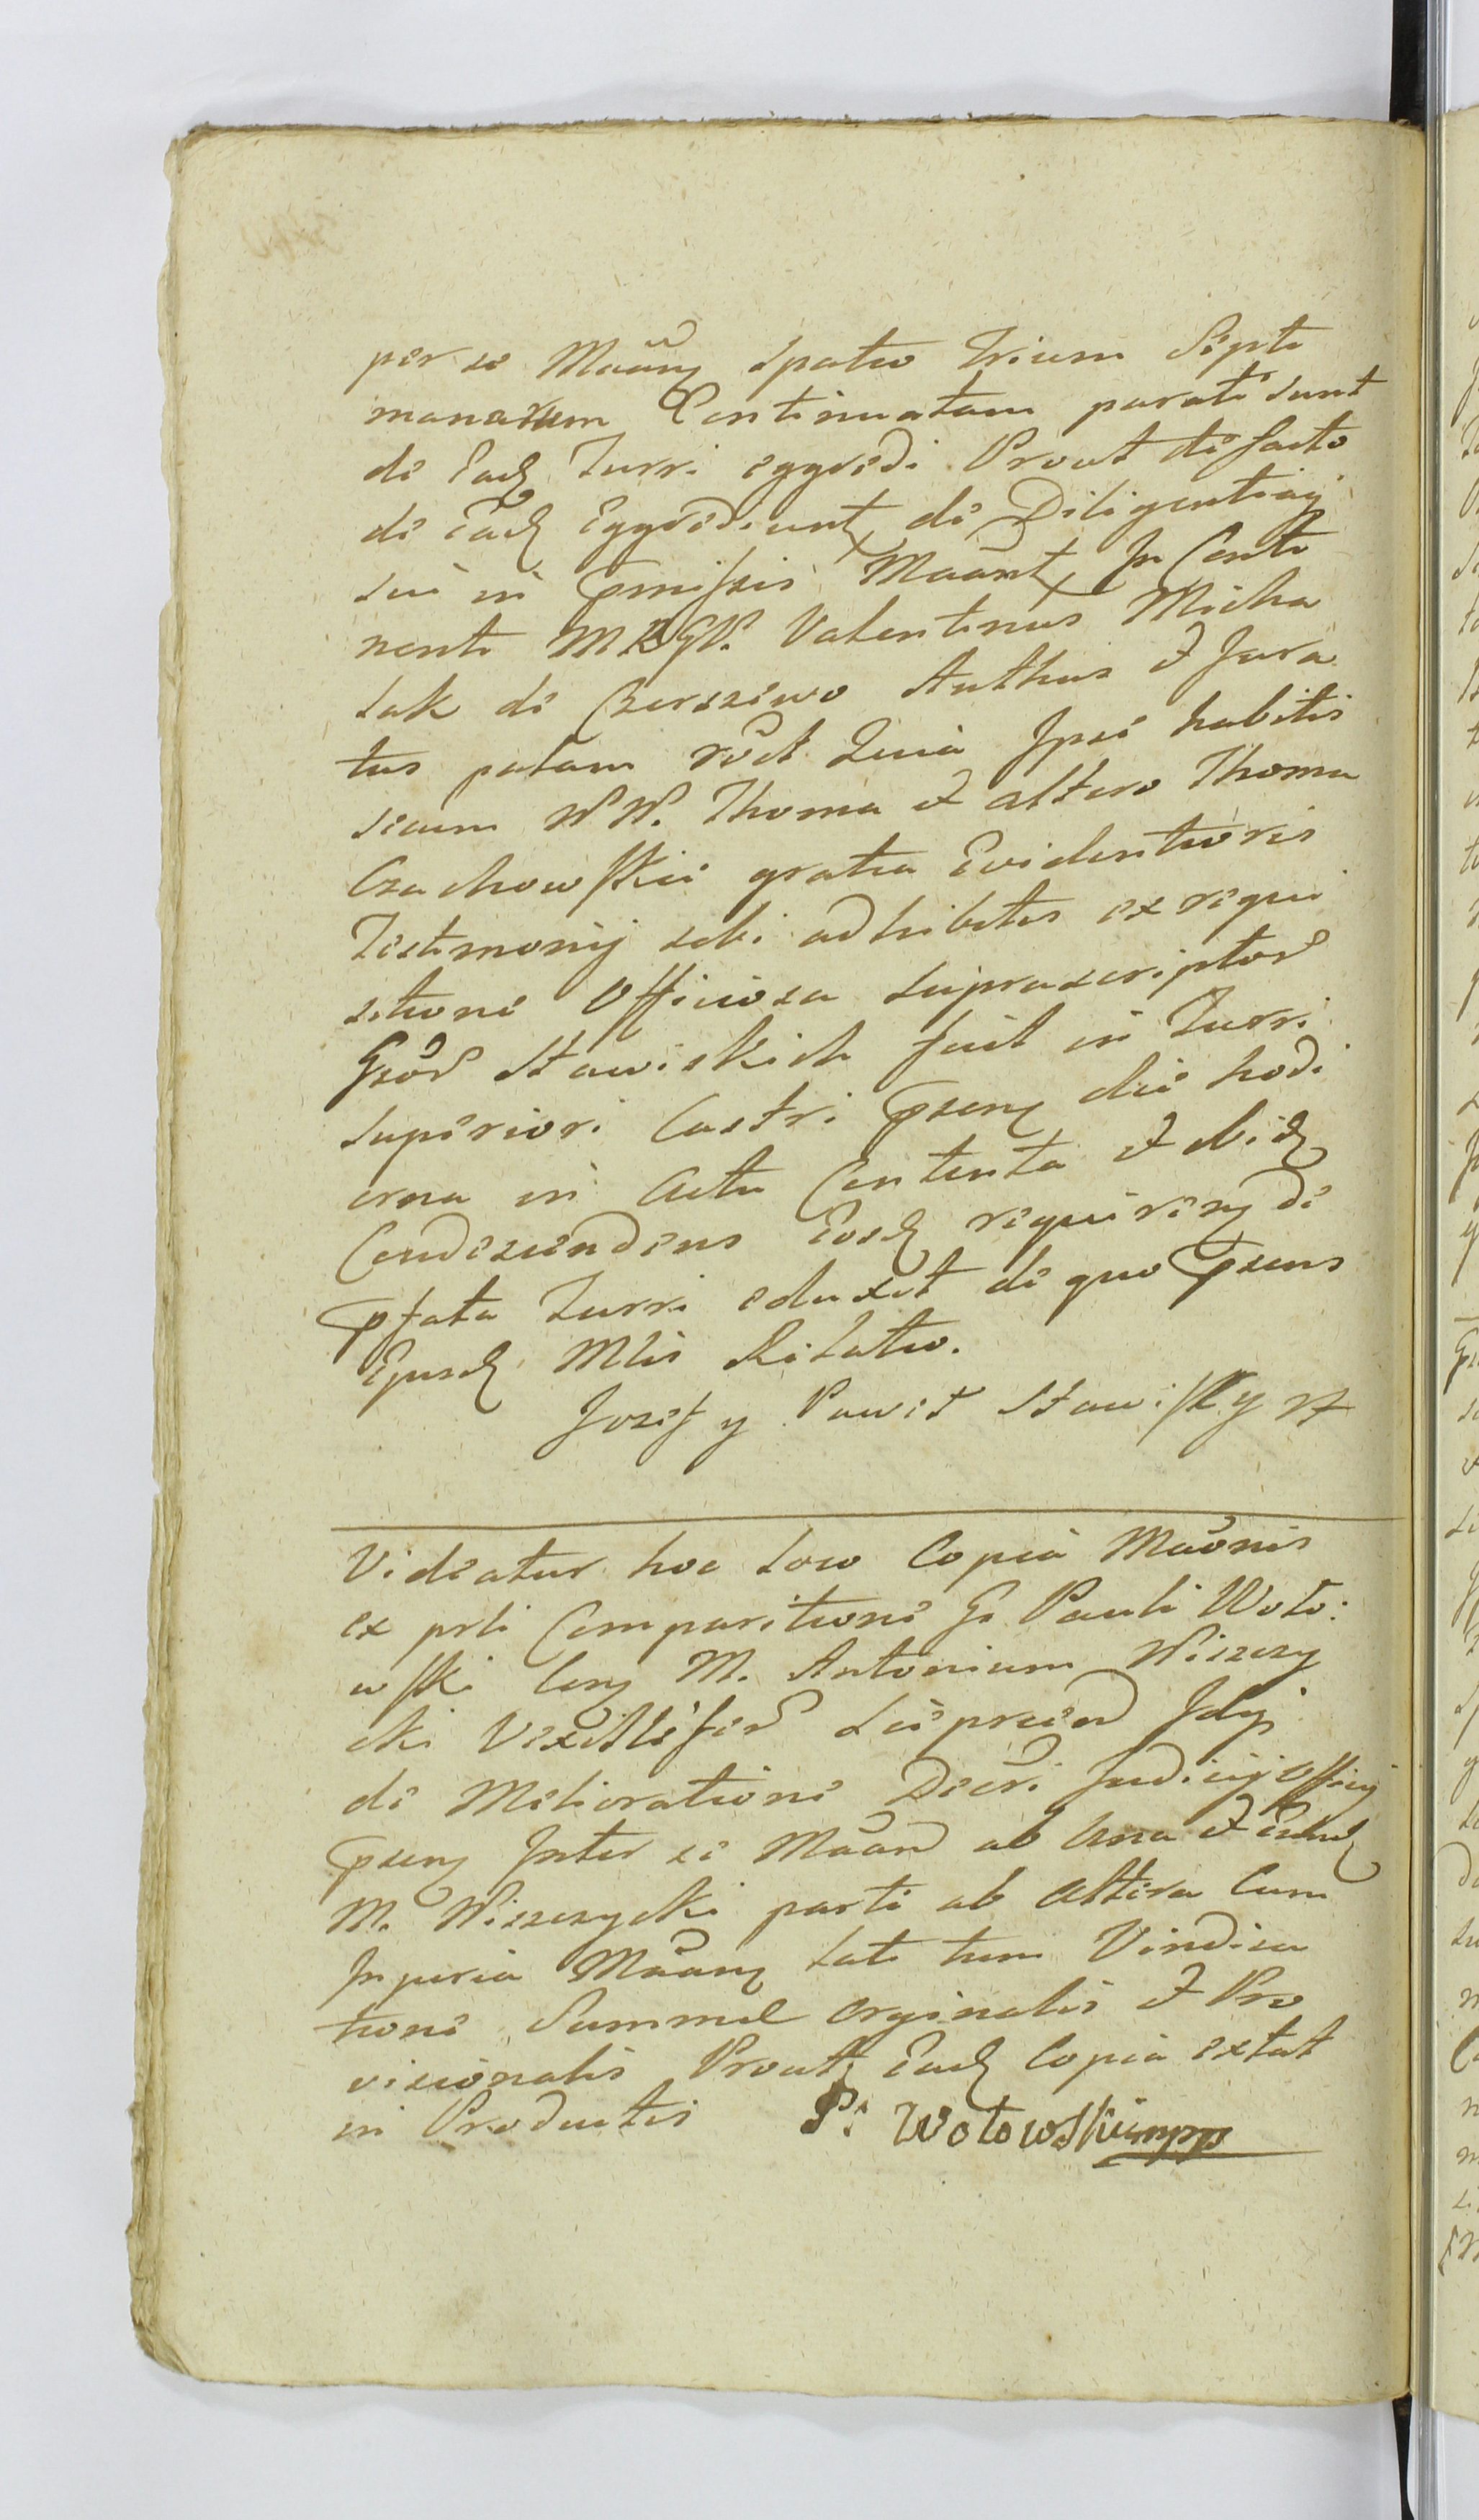 per se Maāng spatio trium Septi
manarum Continuatam parati sunt
de Eadg Turri eggredi Prout de facto
de Eadg Eggrediunt de Diligentiaq
sui in Pmissis Maānt In Conti
nenti MRGP. Valentinus Micha
lak de Czersziewo Authus et Jura
tus palam rődt Quia Ipse habitis
secum NN. Thoma et altero Thoma
Czachowskie gratia Evidentioris
Testimonij sibi adhibitis ex requi
sitione Officiosa supra scriptor
Gnőr Stawiskich fuit in Turri
superiori Castri Psenq die hodi
erna in Actu Contenta et ibidg
Condescendens Eosdg requireng de
Pfata Turri eduxit de quo Psens
Ejusdg Mlis Relatio.
Jozef y Paweł Stawiskÿ
Videatur hoc loco Copia Maōnis
ex prti Comparitione G. Pauli Woło:
wski Cong M. Antonium Wiszczy
cki Vexilliferd
de Melioratione Decri Judicij Officij
Pseng Inter se Maānd ab Una et
M. Wiszczycki parte ab altera Cum
Injuria Maānq lati tum Vindica
tione Summæ Orginalis et Pro
visionalis Prout Eadg Copia extat
in Productis P: Wołowski mpp